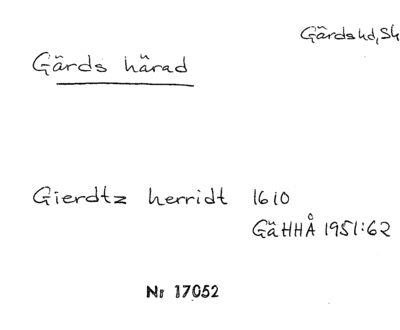 Gärds hd, Sk
Gärds härad
Gierdtz herridt 1610
GäHHÅ 1951:62
Nr 17052